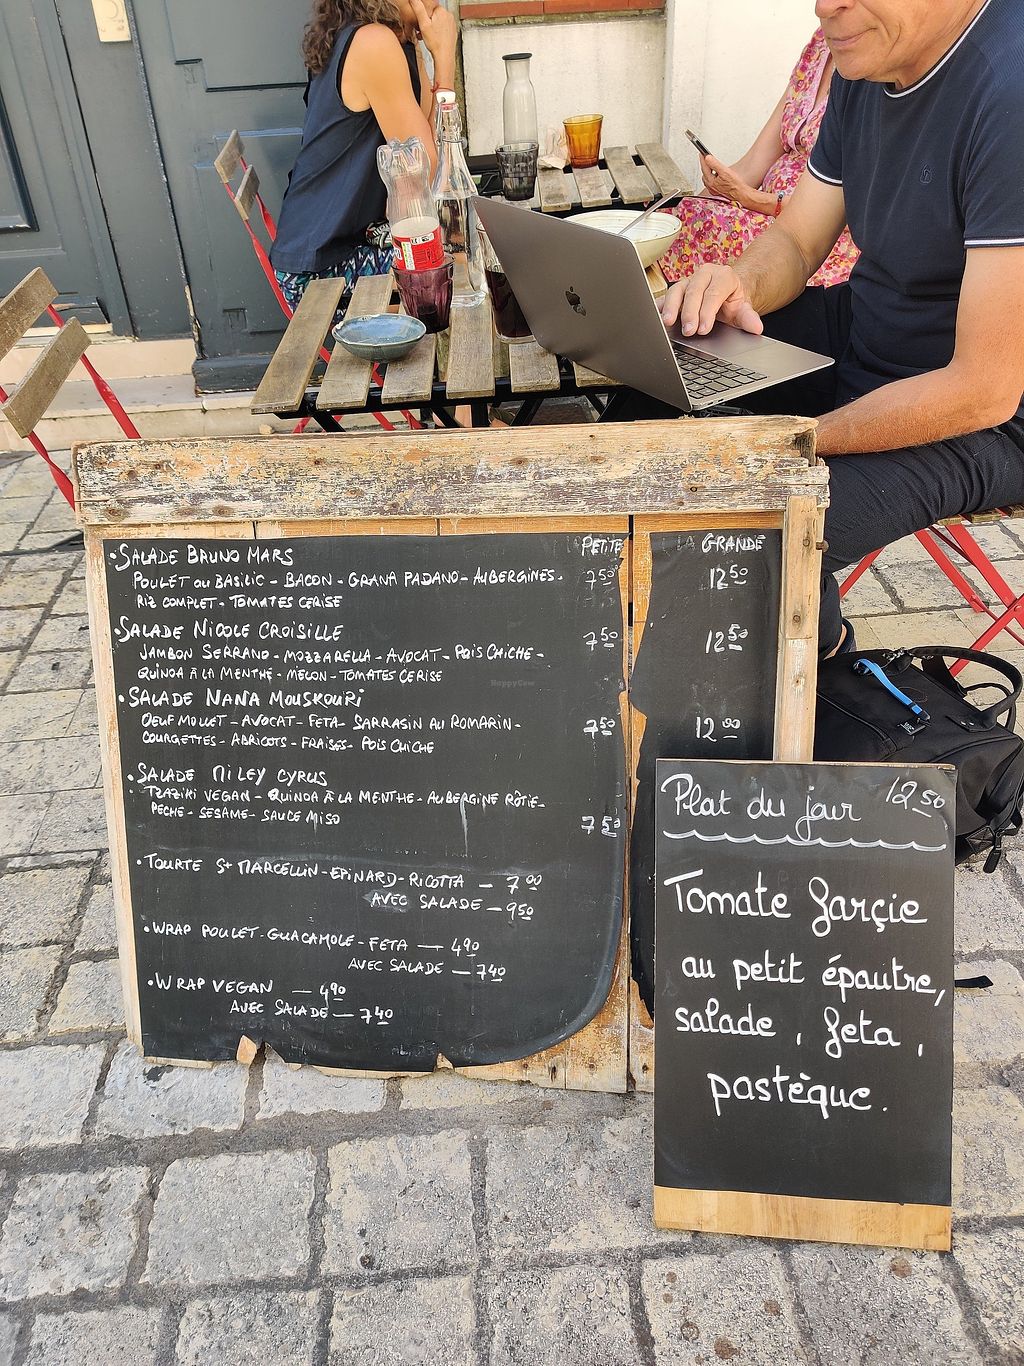 PETITE GRANDE
• SALADE BRUNO MARS
POULET au BASILIC - BACON - GRANA PADANO - AUBERGINES - 7⁵⁰ 12⁵⁰
RIZ COMPLET - TOMATES CERISE
• SALADE NICOLE CROISILLE 7⁵⁰ 12⁵⁰
JAMBON SERRANO - MOZZARELLA - AVOCAT - POIS CHICHE -
QUINOA À LA MENTHE - MELON - TOMATES CERISE
• SALADE NANA MOUSKOURI
OEUF MOLLET - AVOCAT - FETA - SARRASIN AU ROMARIN - 7⁵⁰ 12⁰⁰
COURGETTES - ABRICOTS - FRAISES - POIS CHICHE
• SALADE MILEY CYRUS
TZAZIKI VEGAN - QUINOA À LA MENTHE - AUBERGINE RÔTIE -
PECHE - SESAME - SAUCE MISO 7⁵⁰
• TOURTE St MARCELLIN - EPINARD - RICOTTA - 7⁰⁰
AVEC SALADE - 9⁵⁰
• WRAP POULET - GUACAMOLE - FETA - 4⁹⁰
AVEC SALADE - 7⁴⁰
• WRAP VEGAN - 4⁹⁰
AVEC SALADE - 7⁴⁰
Plat du jour 12.50
Tomate farçie
au petit épautre,
salade, feta,
pastèque.
HappyCow